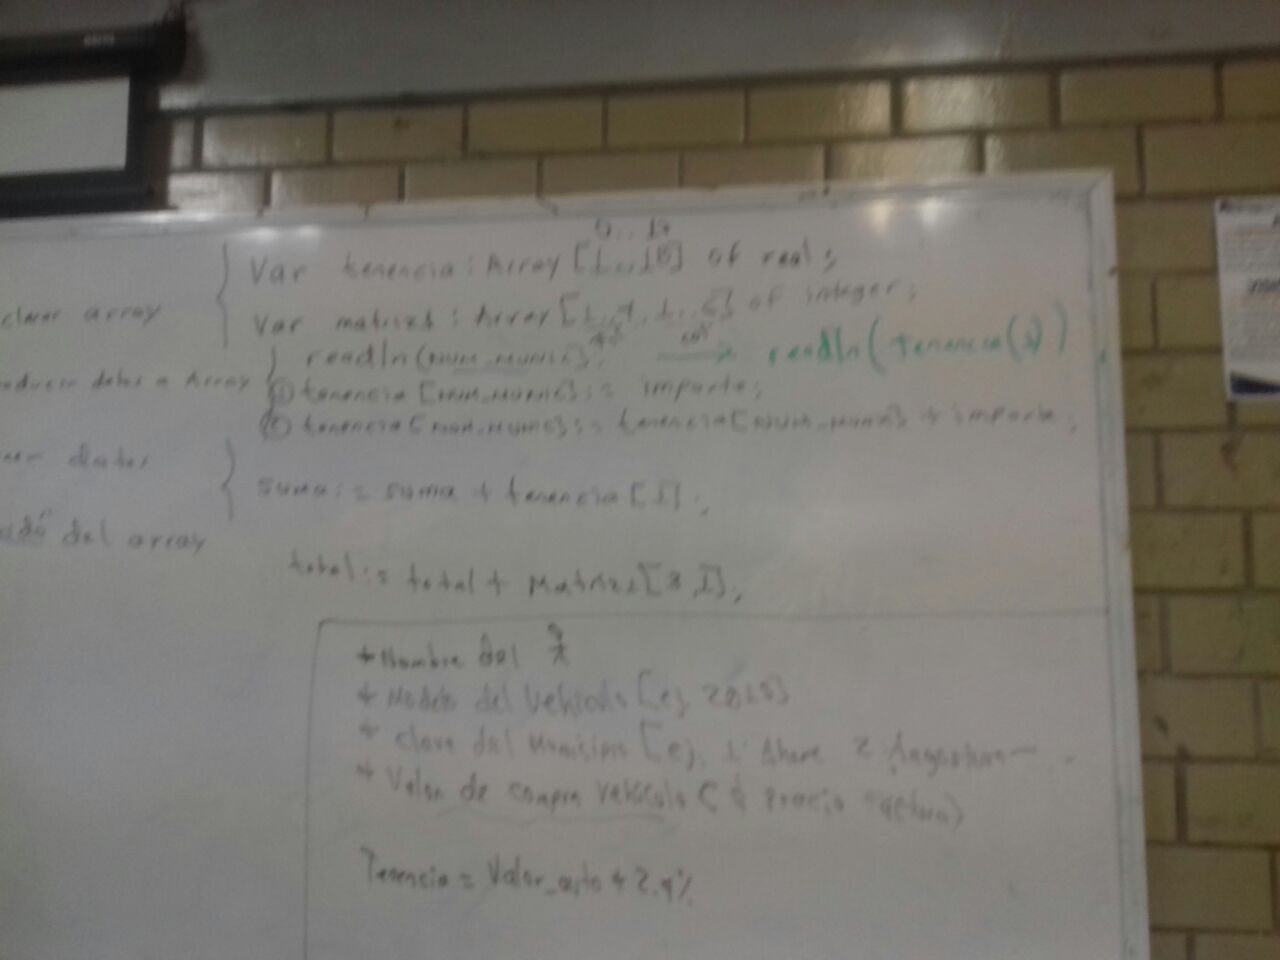 Var tenencia : Array [1..18] of real;
clarar array
Var matriz1 : Array [1.. , 1.. ] of integer;
readln(num_munic); → readln(tenencia(i))
oducir datos a Array
① tenencia [num_munic] := importe;
② tenencia[num_munic] := tenencia[num_munic] + importe;
datos
suma := suma + tenencia [I];
del array
total := total + Matriz1[3,I];
* Nombre del
* Modelo del Vehiculo [ej, 2015]
* Clave del Municipio [ej, 1 Ahome 2 Angostura
* Valor de compra vehiculo ( $ Precio factura)
Tenencia = Valor_auto * 2.4%